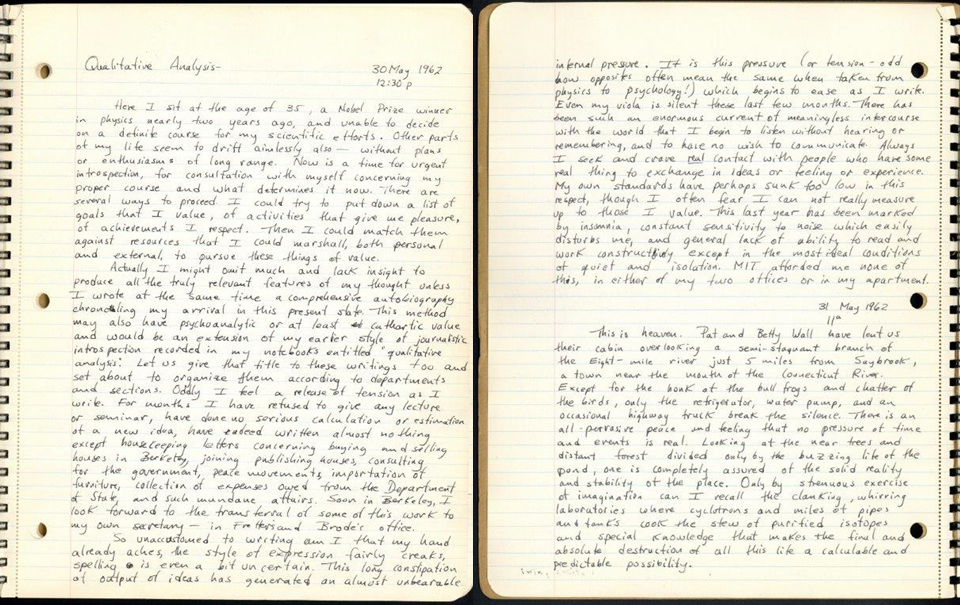 Qualitative Analysis-
30 May 1962
12:30 p
Here I sit at the age of 35, a Nobel Prize winner
in physics nearly two years ago, and unable to decide
on a definite course for my scientific efforts. Other parts
of my life seem to drift aimlessly also — without plans
or enthusiasms of long range. Now is a time for urgent
introspection, for consultation with myself concerning my
proper course and what determines it now. There are
several ways to proceed. I could try to put down a list of
goals that I value, of activities that give me pleasure,
of achievements I respect. Then I could match them
against resources that I could marshall, both personal
and external, to pursue these things of value.
Actually I might omit much and lack insight to
produce all the truly relevant features of my thought unless
I wrote at the same time a comprehensive autobiography
chronicling my arrival in this present state. This method
may also have psychoanalytic or at least cathartic value
and would be an extension of my earlier style of journalistic
introspection recorded in my notebooks entitled "qualitative
analysis." Let us give that title to these writings too and
set about to organize them according to departments
and sections. Oddly I feel a release of tension as I
write. For months I have refused to give any lecture
or seminar, have done no serious calculation or estimation
of a new idea, have indeed written almost nothing
except housekeeping letters concerning buying and selling
houses in Berkeley, joining publishing houses, consulting
for the government, peace movements, importation of
furniture, collection of expenses owed from the Department
of State, and such mundane affairs. Soon in Berkeley, I
look forward to the transferral of some of this work to
my own secretary — in Fretter and Brode's office.
So unaccustomed to writing am I that my hand
already aches, the style of expression fairly creaks,
spelling is even a bit uncertain. This long constipation
of output of ideas has generated an almost unbearable
internal pressure. It is this pressure (or tension - odd
how opposites often mean the same when taken from
physics to psychology!) which begins to ease as I write.
Even my viola is silent these last few months. There has
been such an enormous current of meaningless intercourse
with the world that I begin to listen without hearing or
remembering, and to have no wish to communicate. Always
I seek and crave real contact with people who have some
real thing to exchange in ideas or feeling or experience.
My own standards have perhaps sunk too low in this
respect, though I often fear I can not really measure
up to those I value. This last year has been marked
by insomnia, constant sensitivity to noise which easily
disturbs me, and general lack of ability to read and
work constructively except in the most ideal conditions
of quiet and isolation. MIT afforded me none of
this, in either of my two offices or in my apartment.
31 May 1962
11a
This is heaven. Pat and Betty Wall have lent us
their cabin overlooking a semi-stagnant branch of
the Eight-mile river just 5 miles from Saybrook,
a town near the mouth of the Connecticut River.
Except for the honk of the bull frogs and chatter of
the birds, only the refrigerator, water pump, and an
occasional highway truck break the silence. There is an
all-pervasive peace and feeling that no pressure of time
and events is real. Looking at the near trees and
distant forest divided only by the buzzing life of the
pond, one is completely assured of the solid reality
and stability of the place. Only by strenuous exercise
of imagination can I recall the clanking, whirring
laboratories where cyclotrons and miles of pipes
and tanks cook the stew of purified isotopes
and special knowledge that makes the final and
absolute destruction of all this life a calculable and
predictable possibility.